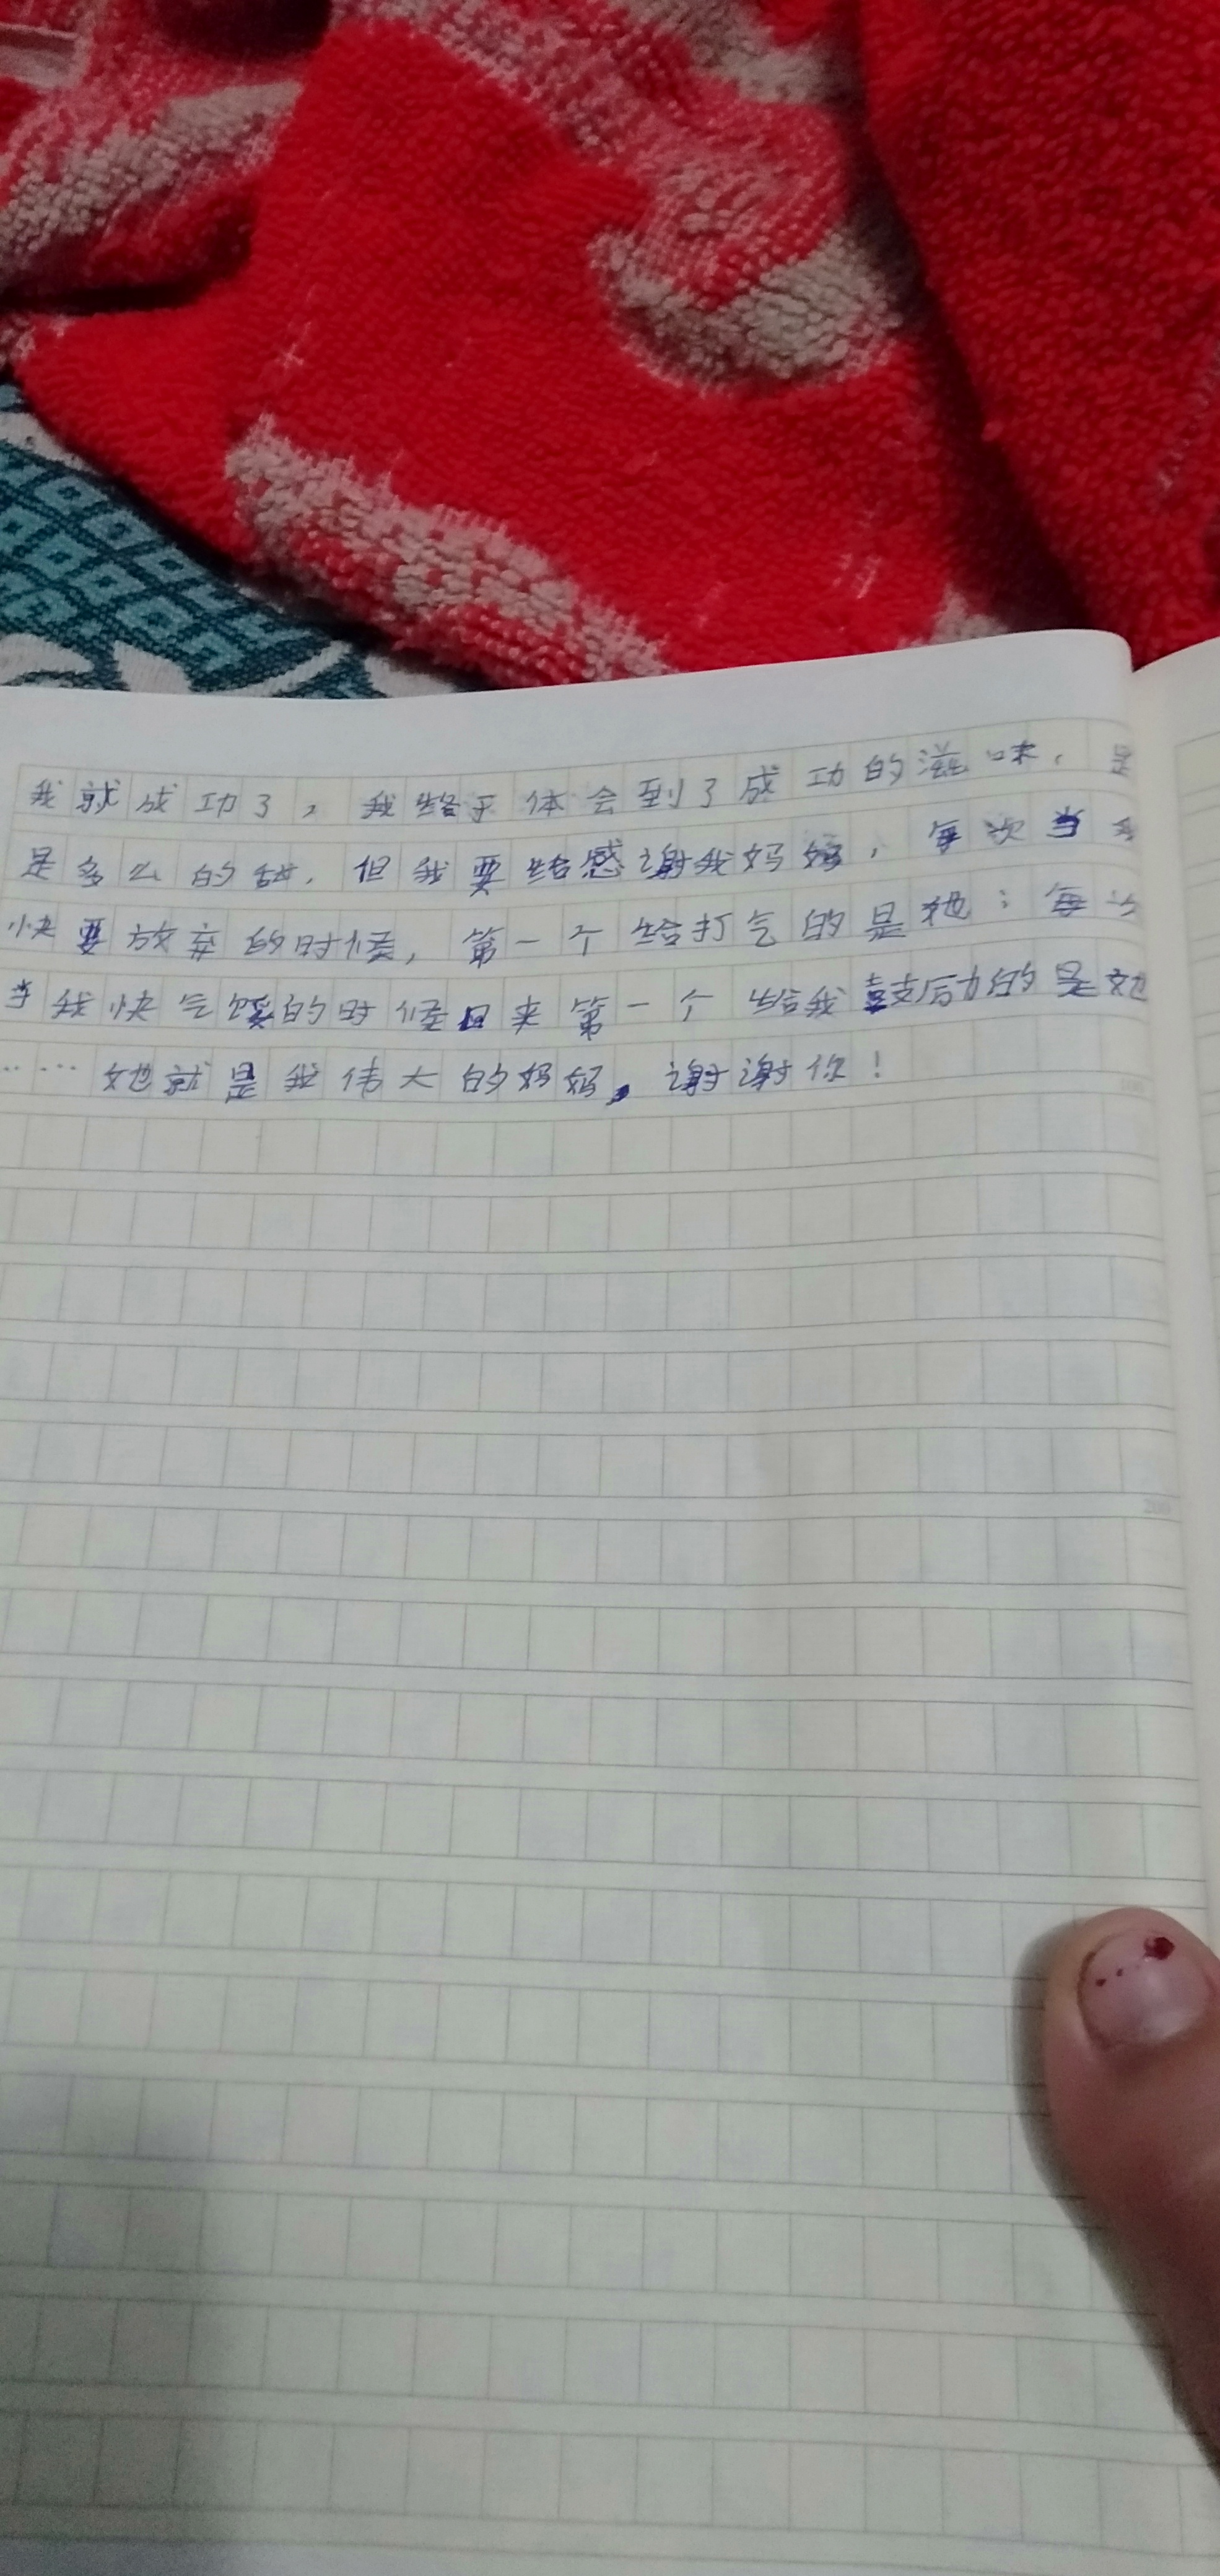 我就成功了，我终于体会到了成功的滋味，是
是多么的甜，但我要给感谢我妈妈，每次当
快要放弃的时候，第一个给打气的是她；每
当我快气馁的时候日来第一个给我鼓后力的是她
……她就是我伟大的妈妈，谢谢你！